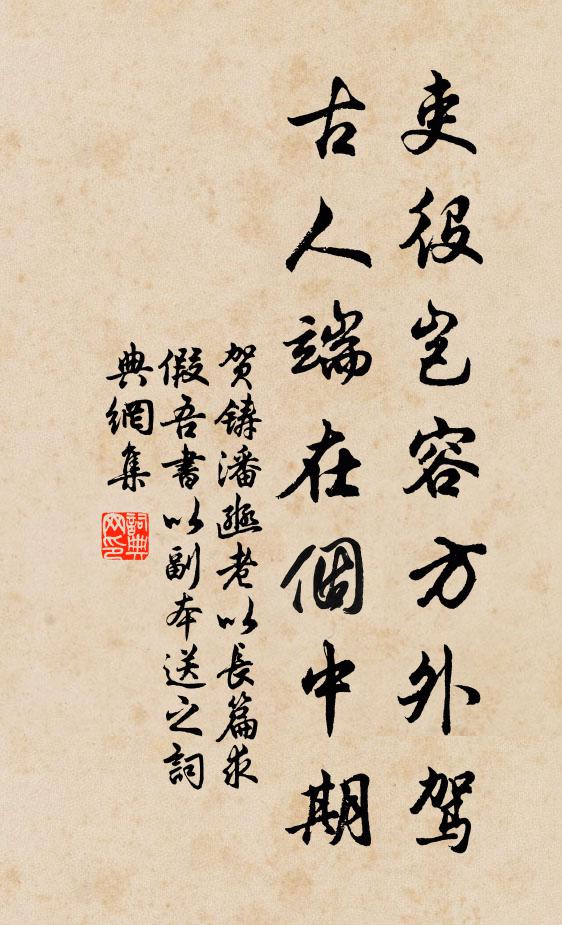 吏役岂容方外驾
古人端在個中期
贺鑄潘邠老以長篇求
假吾書以副本送之詞
典網集
詞典网印